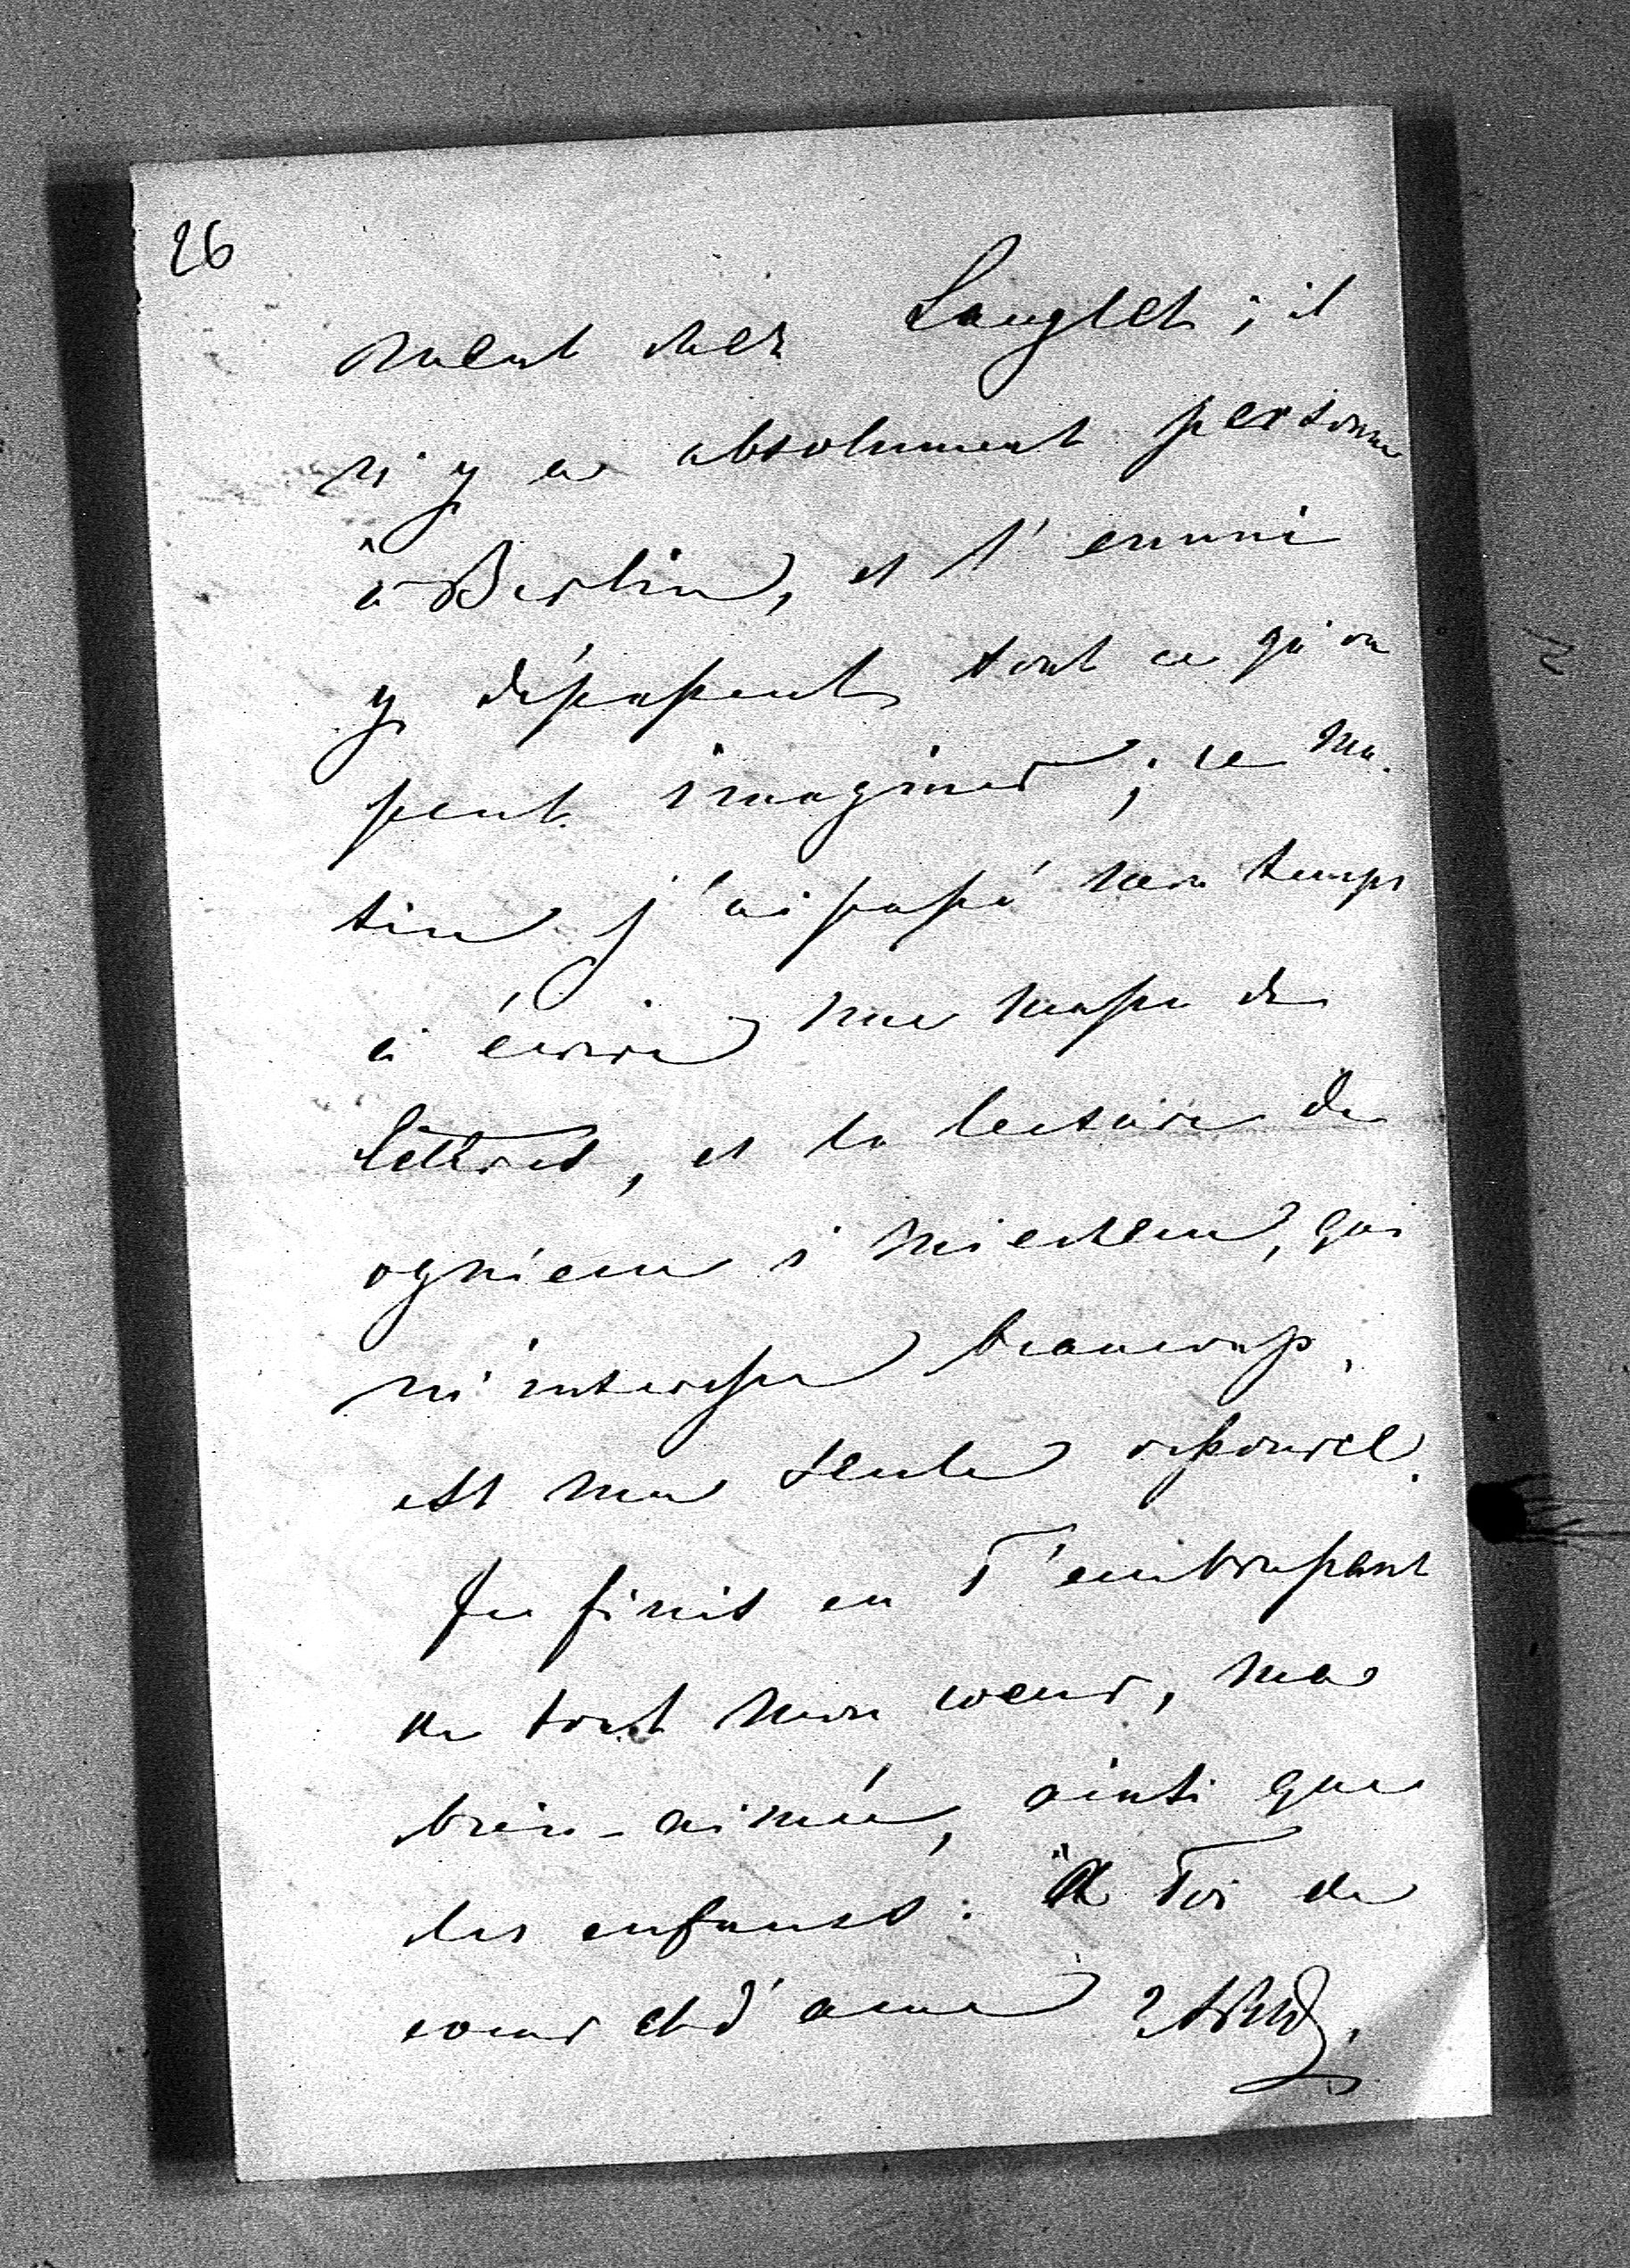 26
ment chez Langlet ; il
n'y a absolument personne
à Berlin, et l'ennui
y dépassent tout ce qu'on
peut imaginer ; ce ma-
tin j'ai passé mon temps
à écrire une masse de
lettres, et la lecture de
ogniem i mieczem, qui
m'interesse beaucoup,
est ma seule
Je finis en T'embrassant
de tout mon coeur, ma
bien-aimée, ainsi que
les enfants. A Toi de
coeur et d'ame